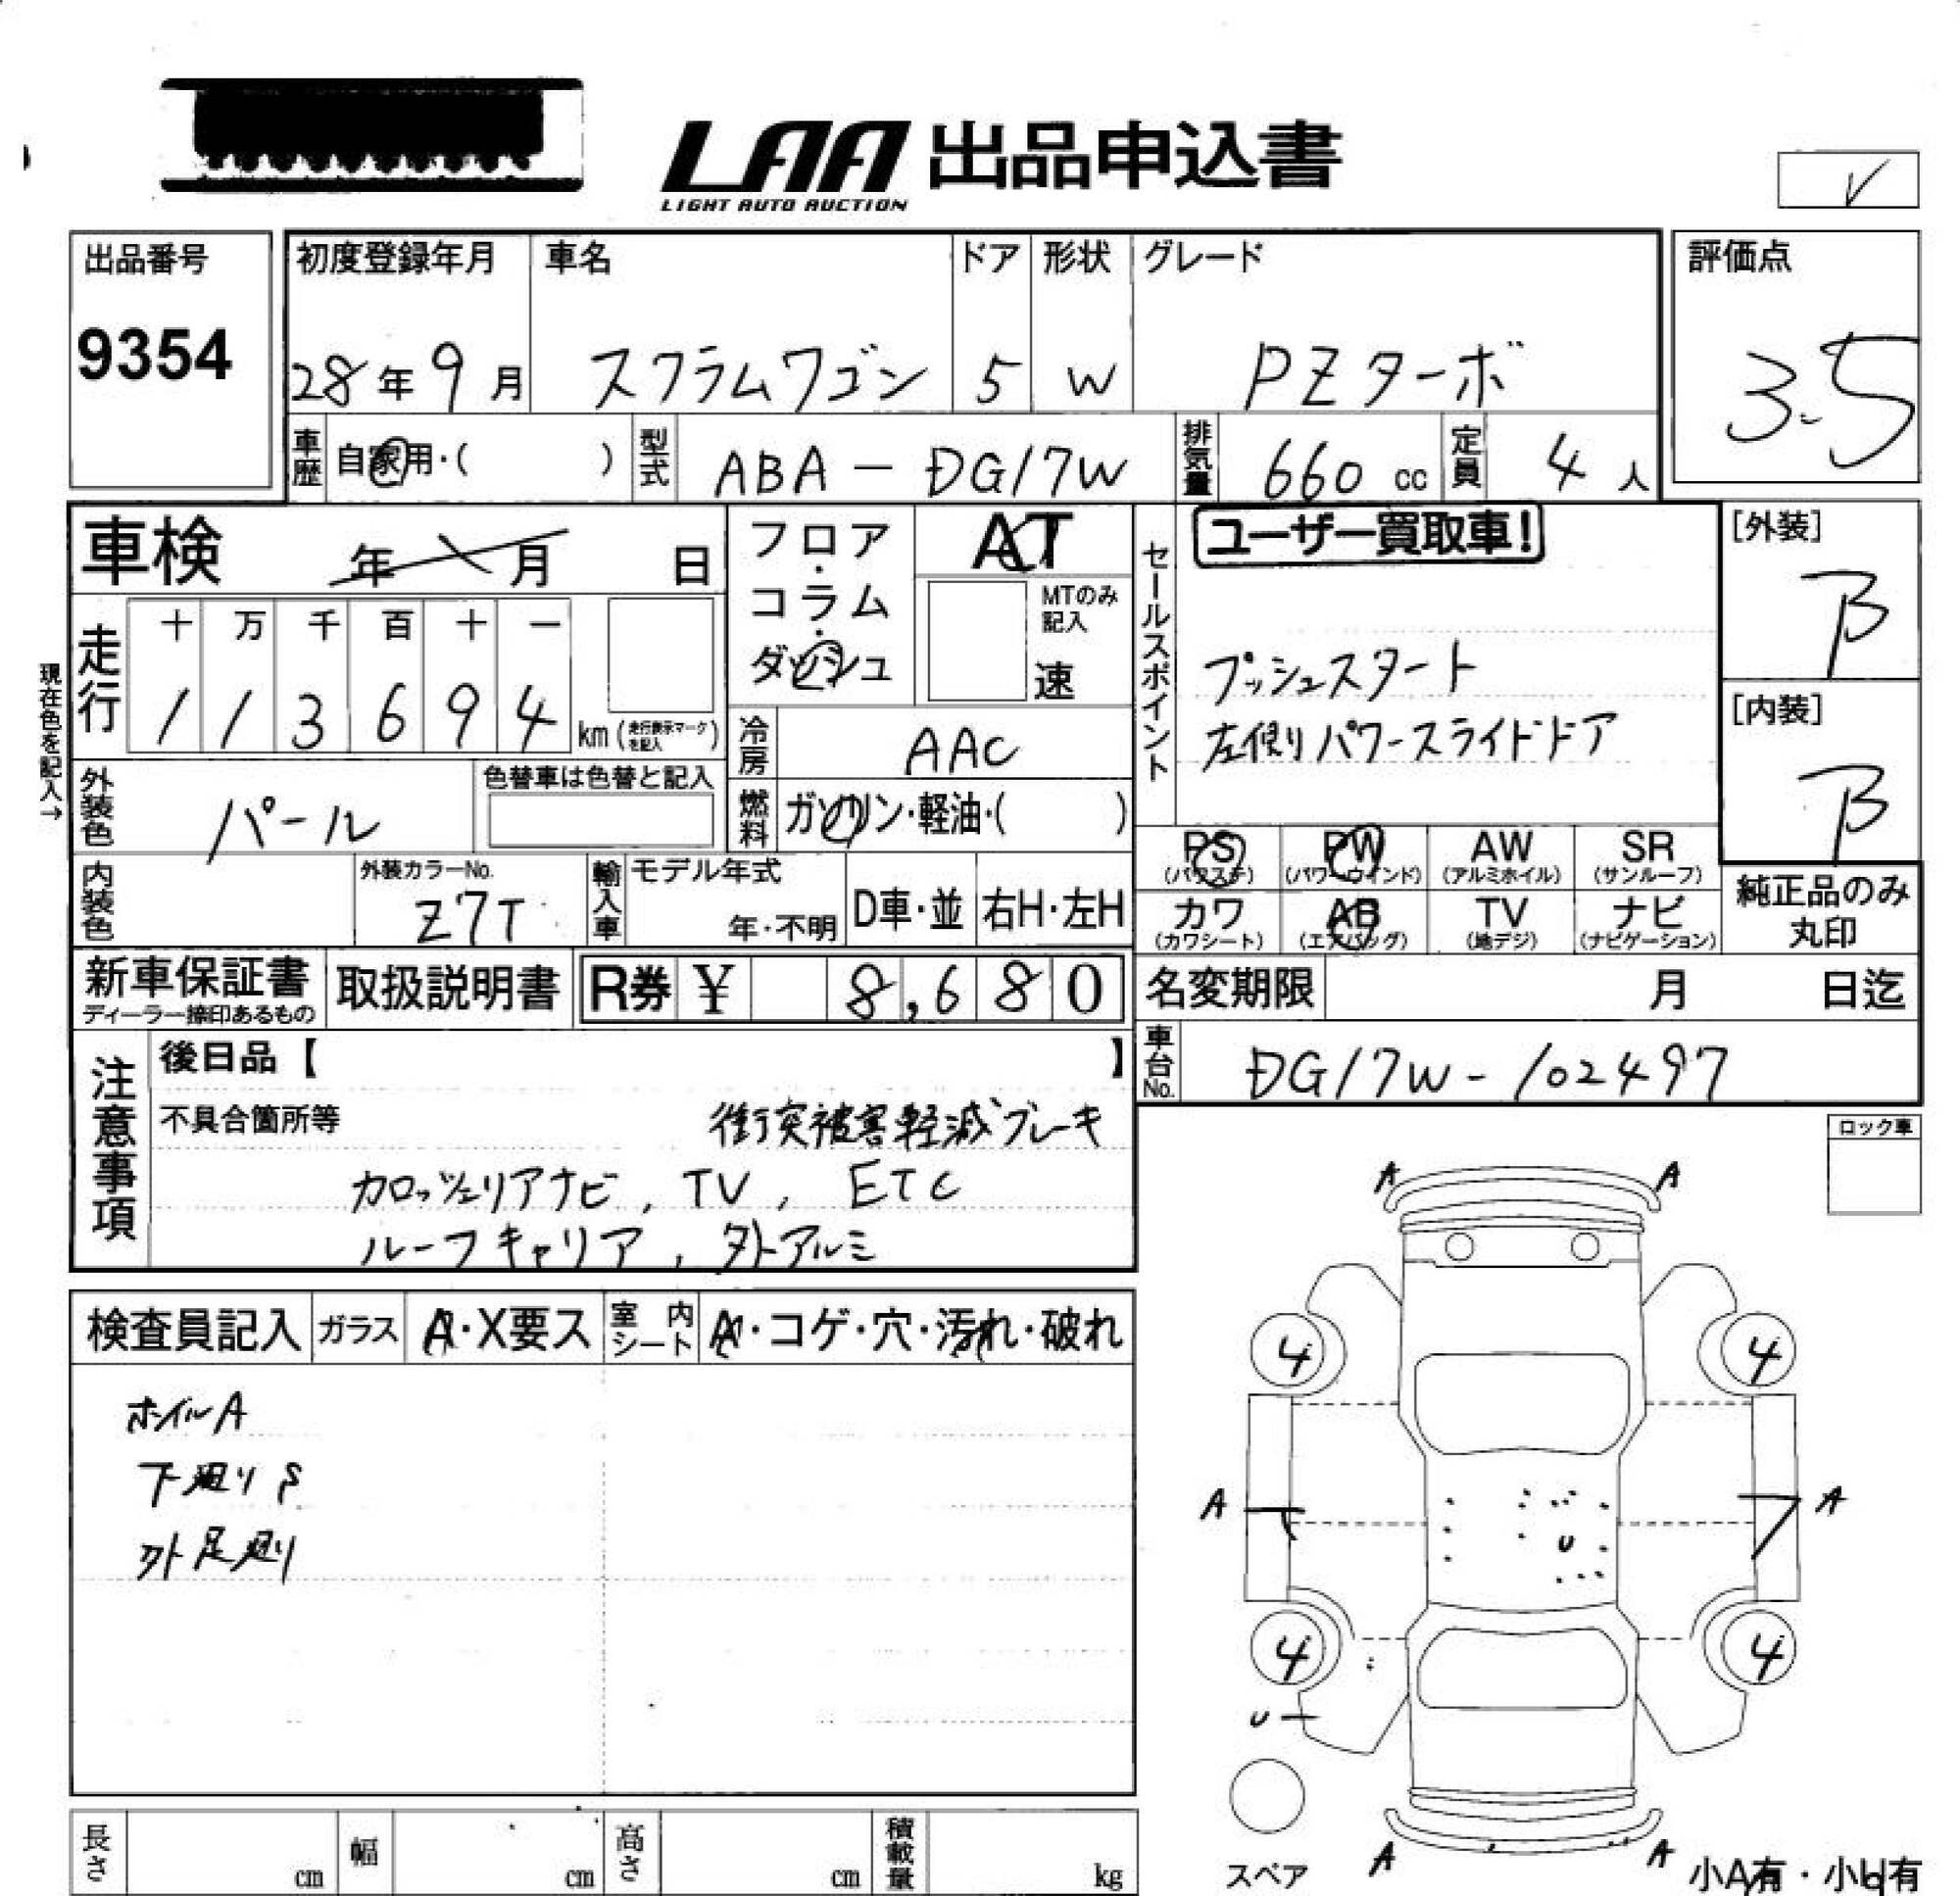 LAA 出品申込書
LIGHT AUTO AUCTION
V
出品番号
9354
初度登録年月 車名 ドア 形状 グレード
28年9月 スクラムワゴン 5 W PZターボ
評価点
3.5
車歴 自家用・( ) 型式 ABA-DG17W 排気量 660 cc 定員 4人
車検 年 月 日
フロア・コラム・ダッシュ
AT
MTのみ記入
速
セールスポイント
ユーザー買取車!
プッシュスタート
左側りパワースライドドア
[外装]
B
[内装]
B
現在色を記入→
走行 十 万 千 百 十 一
1 1 3 6 9 4 km(走行表示マークを記入)
冷房 AAC
外装色 パール 色替車は色替と記入
燃料 ガソリン・軽油・( )
PS (パワステ) PW (パワーウインド) AW (アルミホイル) SR (サンルーフ)
カワ (カワシート) AB (エアバッグ) TV (地デジ) ナビ (ナビゲーション)
純正品のみ
丸印
内装色 外装カラーNo. Z7T 輸入車 モデル年式 年・不明 D車・並 右H・左H
新車保証書 ディーラー捺印あるもの 取扱説明書 R券 ¥ 8,680
名変期限 月 日迄
車台No. DG17W-102497
注意事項
後日品【 】
不具合箇所等 衝突被害軽減ブレーキ
カロッツェリアナビ, TV, ETC
ルーフキャリア, 外アルミ
ロック車
検査員記入 ガラス A・X要ス 室内シート A・コゲ・穴・汚れ・破れ
ホイルA
下廻りS
外足廻り
A A
4 4
A A
U
4 4
U
A A
スペア
小A有・小U有
長さ cm 幅 cm 高さ cm 積載量 kg